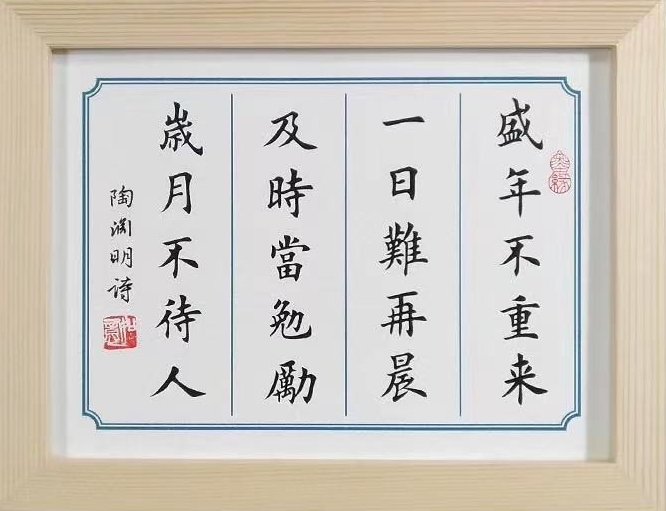 盛年不重来
一日難再晨
及時當勉勵
歳月不待人
陶渊明詩